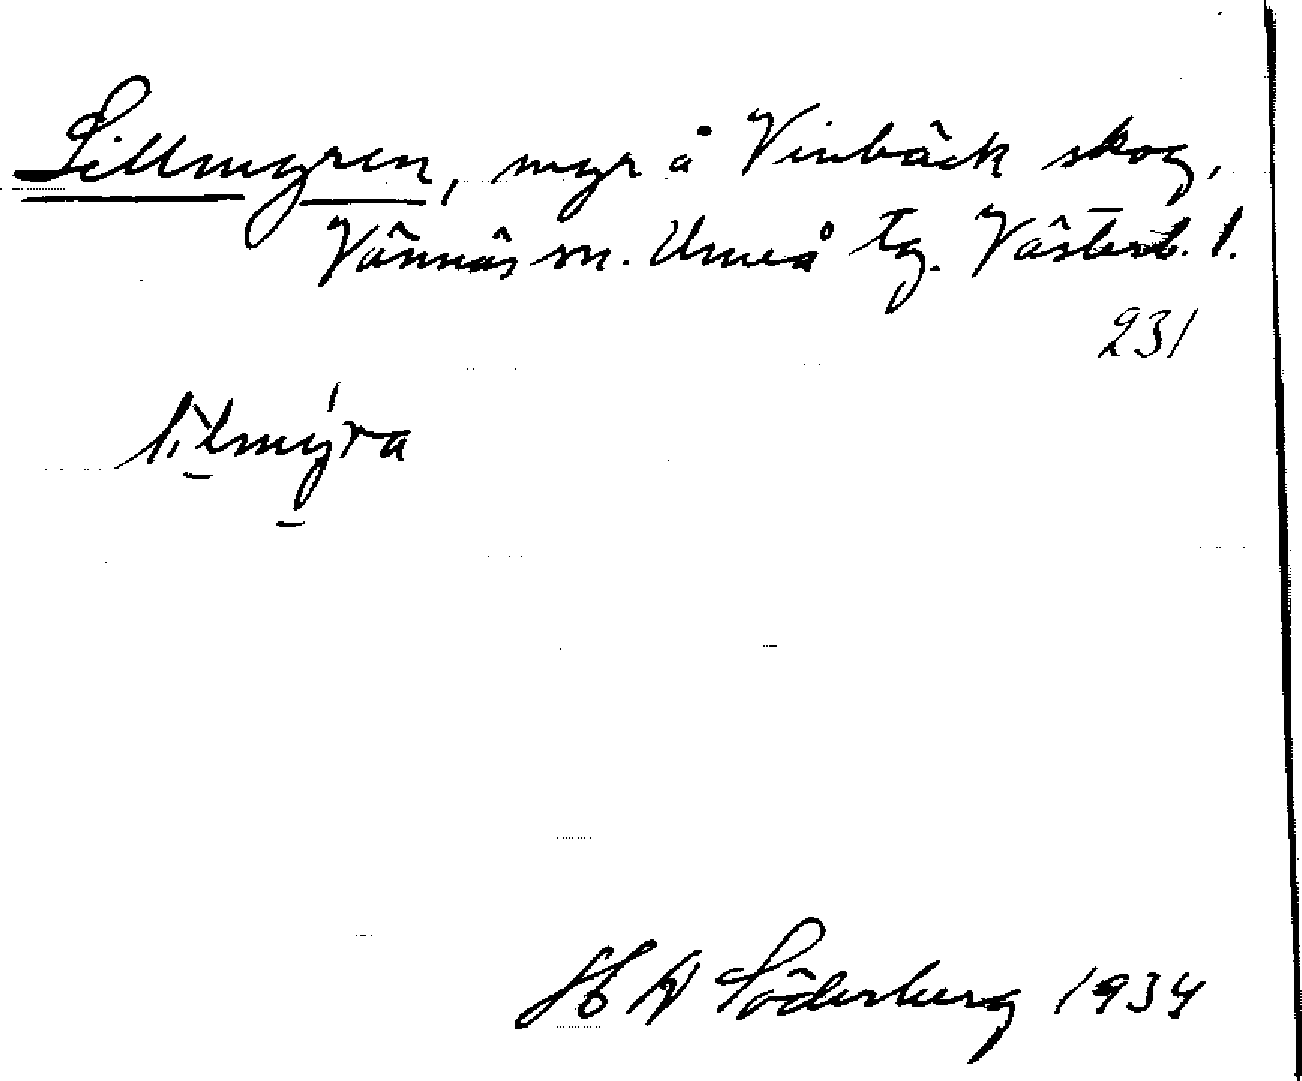 Lillmyren, myr å Vinbäck skog,
Vännäs sn. Umeå tg. Västerb. l.
231
li`lmy´ra
H W Söderberg 1934